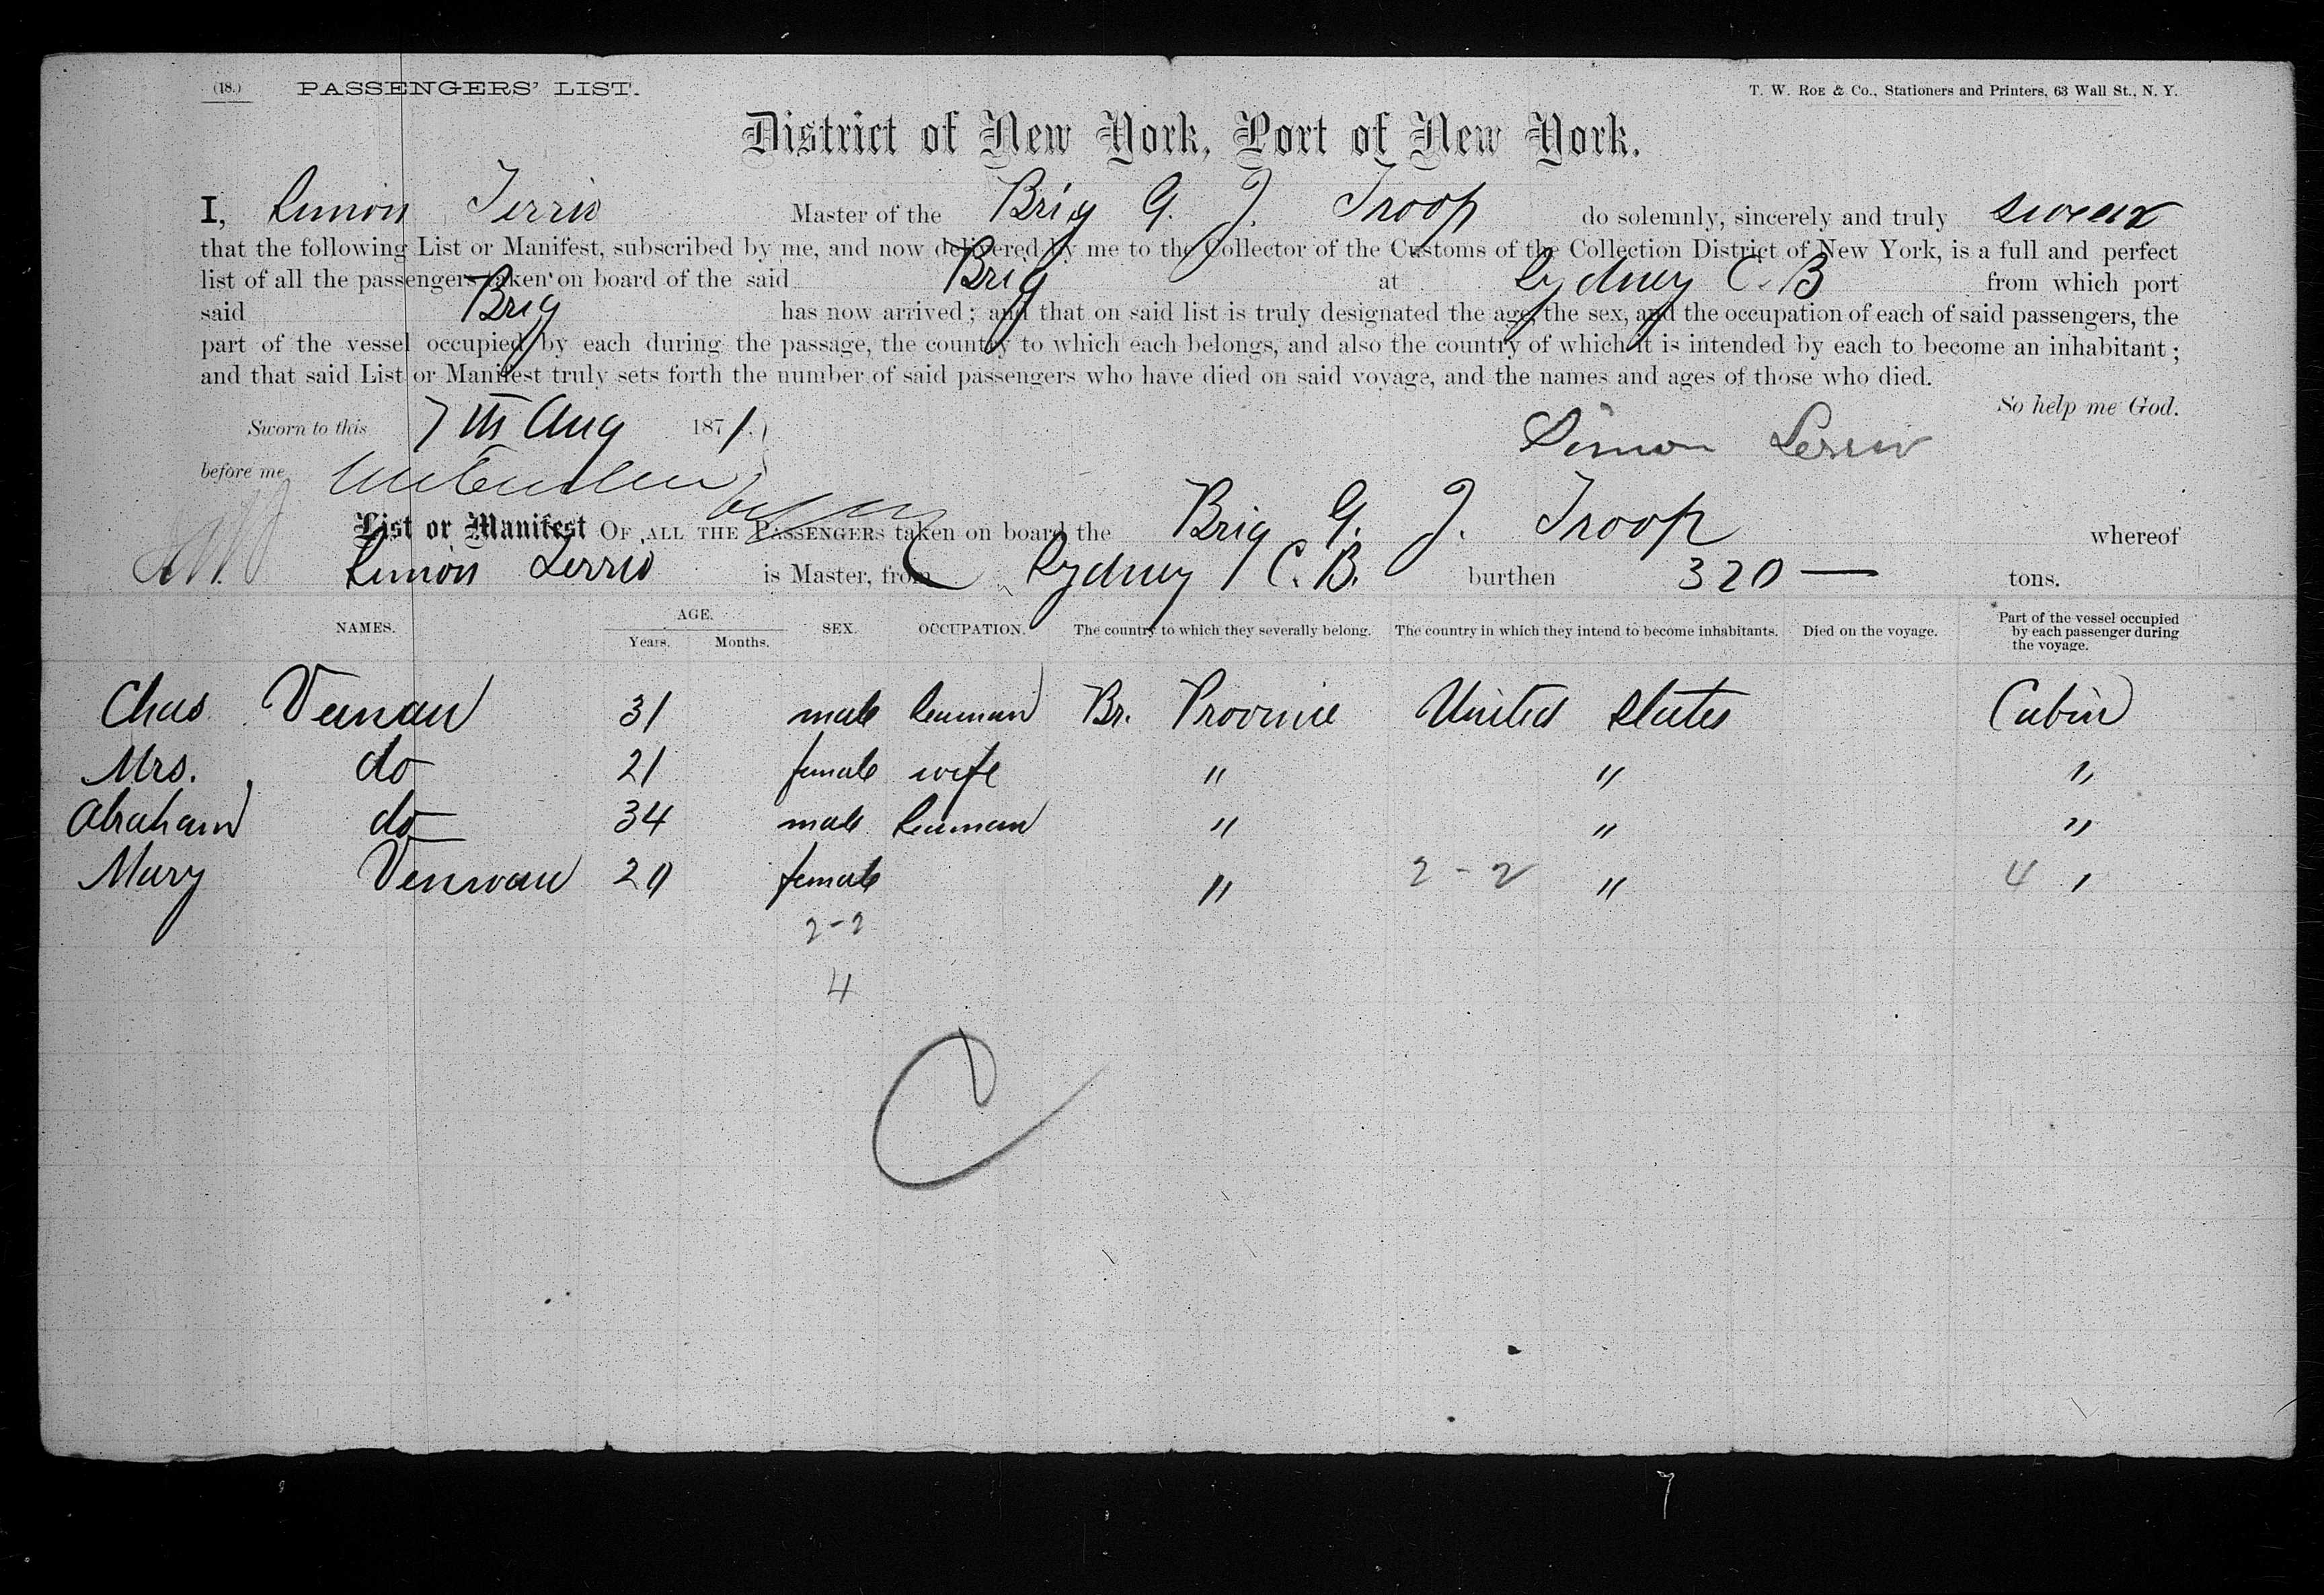 (18.) PASSENGERS' LIST. T. W. ROE & Co., Stationers and Printers, 63 Wall St., N. Y.
District of New York, Port of New York.
I, Simon Terrio Master of the Brig G. J. Troop do solemnly, sincerely and truly swear
that the following List or Manifest, subscribed by me, and now delivered by me to the Collector of the Customs of the Collection District of New York, is a full and perfect
list of all the passengers taken on board of the said Brig at Sydney C. B from which port
said Brig has now arrived; and that on said list is truly designated the age, the sex, and the occupation of each of said passengers, the
part of the vessel occupied by each during the passage, the country to which each belongs, and also the country of which it is intended by each to become an inhabitant;
and that said List or Manifest truly sets forth the number of said passengers who have died on said voyage, and the names and ages of those who died.
So help me God.
Sworn to this 7th Aug 1871.
Simon Terrio
before me
List or Manifest OF ALL THE PASSENGERS taken on board the Brig G. J. Troop whereof
Simon Terrio is Master, from Sydney C. B. burthen 320 — tons.
NAMES. AGE. Years. Months. SEX. OCCUPATION. The country to which they severally belong. The country in which they intend to become inhabitants. Died on the voyage. Part of the vessel occupied by each passenger during the voyage.
Chas 31 male Seaman Br. Province United States Cabin
Mrs. do 21 female wife " " "
Abraham do 34 male Seaman " " "
Mary 20 female " 2-2 " 4 "
2-2
4
C